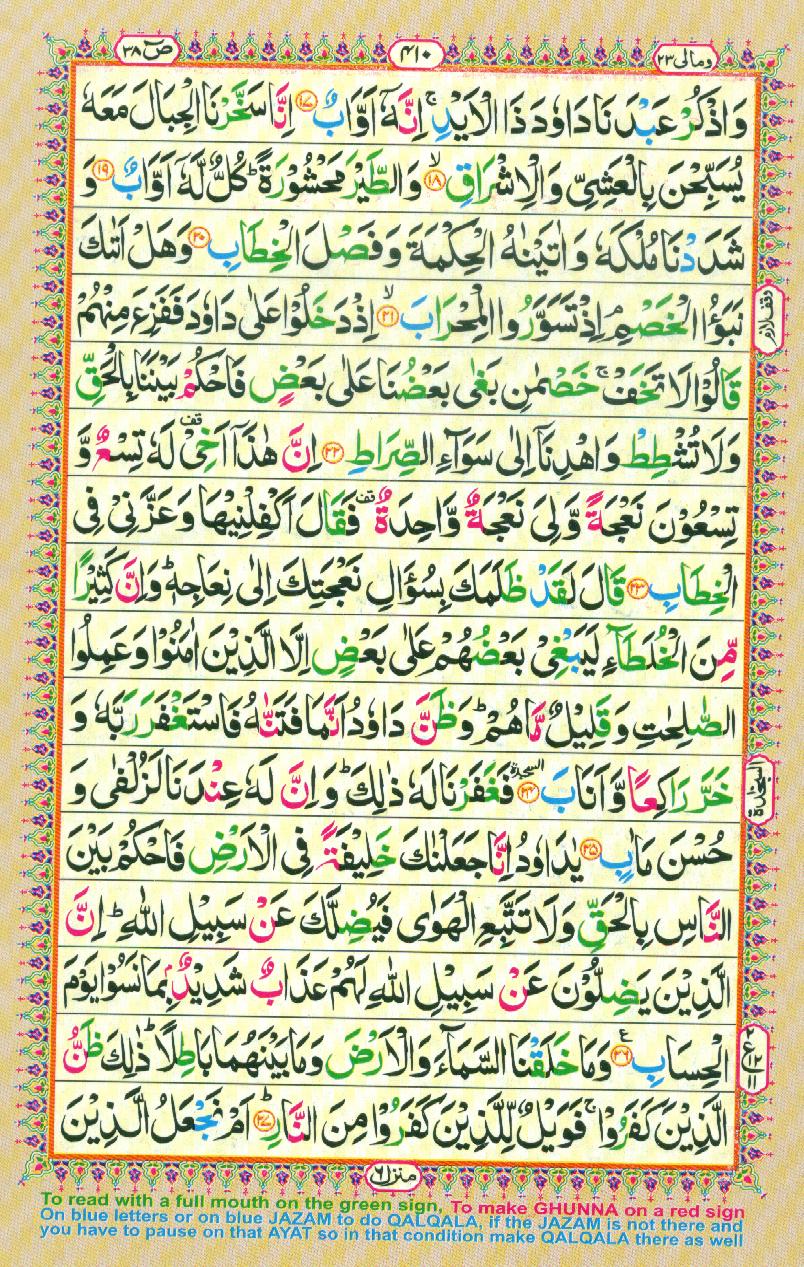 ومالی ۲۳
۴۱۰
صٓ ۳۸
وَاذْكُرْ عَبْدَنَا دَاوٗدَ ذَا الْاَیْدِ ۚ اِنَّهٗۤ اَوَّابٌ ﴿۱۷﴾ اِنَّا سَخَّرْنَا الْجِبَالَ مَعَهٗ
یُسَبِّحْنَ بِالْعَشِیِّ وَالْاِشْرَاقِ ﴿۱۸﴾ۙ وَالطَّیْرَ مَحْشُوْرَةً ؕ كُلٌّ لَّهٗۤ اَوَّابٌ ﴿۱۹﴾ وَ
شَدَدْنَا مُلْكَهٗ وَاٰتَیْنٰهُ الْحِكْمَةَ وَفَصْلَ الْخِطَابِ ﴿۲۰﴾ وَهَلْ اَتٰىكَ
نَبَؤُا الْخَصْمِ ۘ اِذْ تَسَوَّرُوا الْمِحْرَابَ ﴿۲۱﴾ۙ اِذْ دَخَلُوْا عَلٰی دَاوٗدَ فَفَزِعَ مِنْهُمْ
وقف لازم
قَالُوْا لَا تَخَفْ ۚ خَصْمٰنِ بَغٰی بَعْضُنَا عَلٰی بَعْضٍ فَاحْكُمْ بَیْنَنَا بِالْحَقِّ
وَلَا تُشْطِطْ وَاهْدِنَاۤ اِلٰی سَوَآءِ الصِّرَاطِ ﴿۲۲﴾ اِنَّ هٰذَاۤ اَخِیْ ۫ لَهٗ تِسْعٌ وَّ
تِسْعُوْنَ نَعْجَةً وَّلِیَ نَعْجَةٌ وَّاحِدَةٌ ۫ فَقَالَ اَكْفِلْنِیْهَا وَعَزَّنِیْ فِی
الْخِطَابِ ﴿۲۳﴾ قَالَ لَقَدْ ظَلَمَكَ بِسُؤَالِ نَعْجَتِكَ اِلٰی نِعَاجِهٖ ؕ وَاِنَّ كَثِیْرًا
مِّنَ الْخُلَطَآءِ لَیَبْغِیْ بَعْضُهُمْ عَلٰی بَعْضٍ اِلَّا الَّذِیْنَ اٰمَنُوْا وَعَمِلُوا
الصّٰلِحٰتِ وَقَلِیْلٌ مَّا هُمْ ؕ وَظَنَّ دَاوٗدُ اَنَّمَا فَتَنّٰهُ فَاسْتَغْفَرَ رَبَّهٗ وَ
خَرَّ رَاكِعًا وَّاَنَابَ ﴿۲۴﴾ السجدة فَغَفَرْنَا لَهٗ ذٰلِكَ ؕ وَاِنَّ لَهٗ عِنْدَنَا لَزُلْفٰی وَ
السجدة
حُسْنَ مَاٰبٍ ﴿۲۵﴾ یٰدَاوٗدُ اِنَّا جَعَلْنٰكَ خَلِیْفَةً فِی الْاَرْضِ فَاحْكُمْ بَیْنَ
النَّاسِ بِالْحَقِّ وَلَا تَتَّبِعِ الْهَوٰی فَیُضِلَّكَ عَنْ سَبِیْلِ اللّٰهِ ؕ اِنَّ
الَّذِیْنَ یَضِلُّوْنَ عَنْ سَبِیْلِ اللّٰهِ لَهُمْ عَذَابٌ شَدِیْدٌۢ بِمَا نَسُوْا یَوْمَ
الْحِسَابِ ﴿۲۶﴾ع وَمَا خَلَقْنَا السَّمَآءَ وَالْاَرْضَ وَمَا بَیْنَهُمَا بَاطِلًا ؕ ذٰلِكَ ظَنُّ
۲
ع ۱۲
۱۱
الَّذِیْنَ كَفَرُوْا ۚ فَوَیْلٌ لِّلَّذِیْنَ كَفَرُوْا مِنَ النَّارِ ﴿۲۷﴾ؕ اَمْ نَجْعَلُ الَّذِیْنَ
منزل ۶
To read with a full mouth on the green sign, To make GHUNNA on a red sign
On blue letters or on blue JAZAM to do QALQALA, if the JAZAM is not there and
you have to pause on that AYAT so in that condition make QALQALA there as well